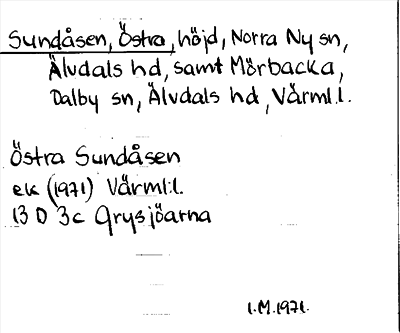 Sundåsen, Östra, höjd, Norra Ny sn,
Älvdals hd, samt Mörbacka,
Dalby sn, Älvdals hd, Värml.l.
Östra Sundåsen
ek (1971) Värml.l.
13 D 3c Grysjöarna
l.M.1971.